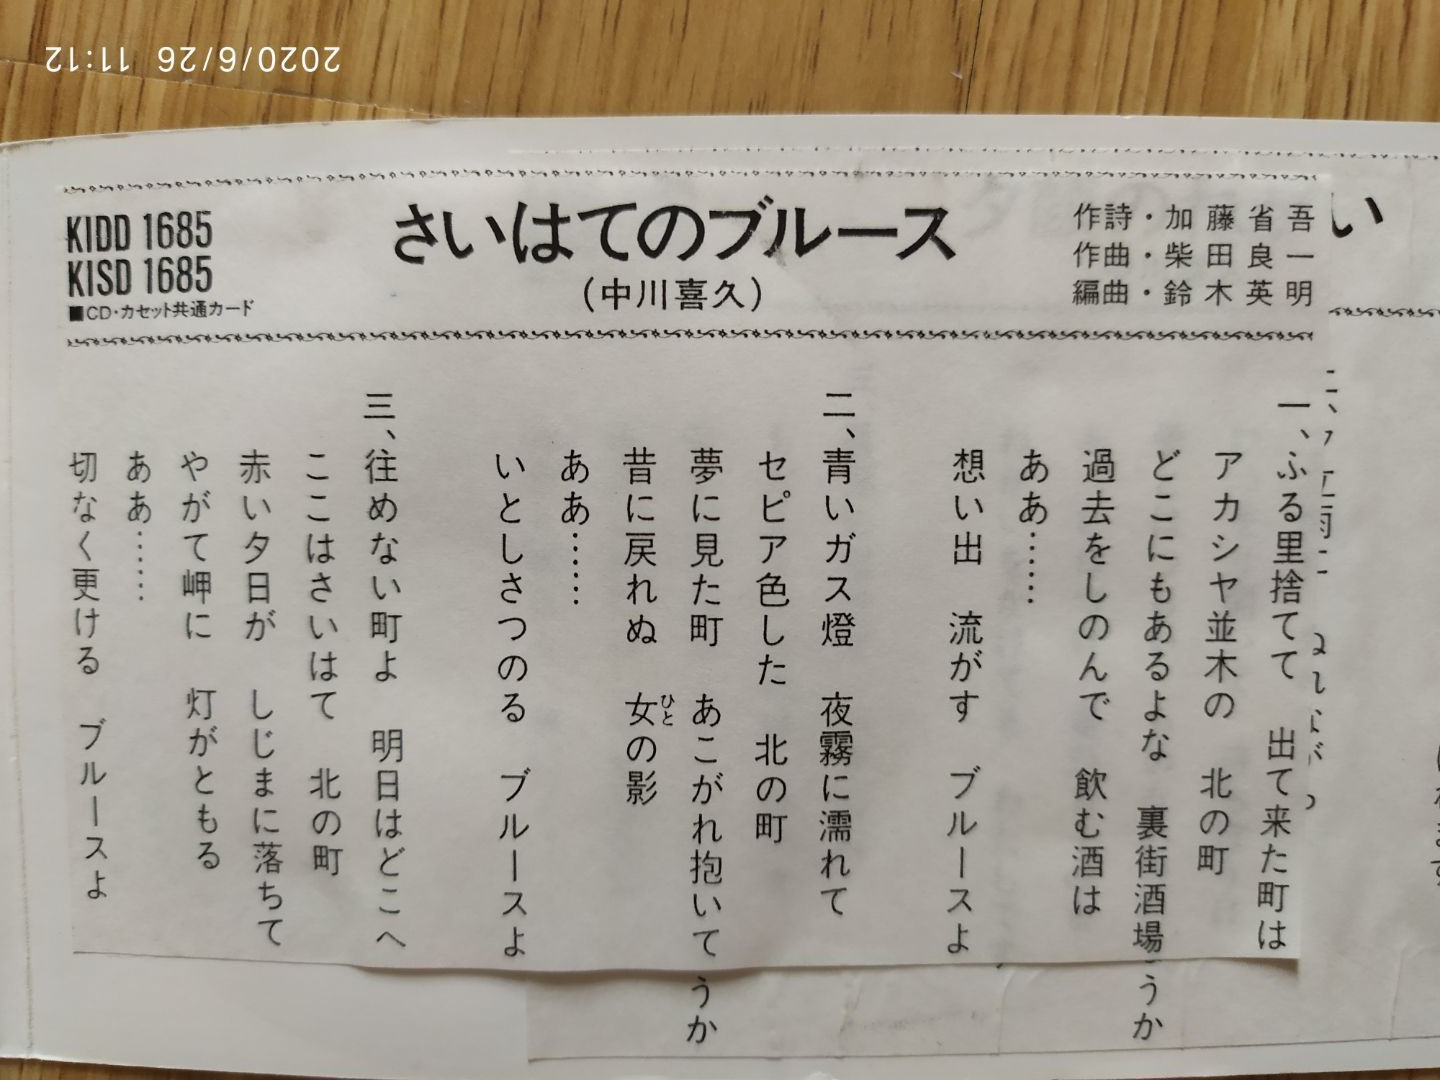 2020/6/26 11:12
KIDD 1685
KISD 1685
■CD・カセット共通カード
さいはてのブルース
(中川喜久)
作詩・加藤省吾
作曲・柴田良一
編曲・鈴木英明
い
一、ふる里捨てて　出て来た町は
アカシヤ並木の　北の町
どこにもあるよな　裏街酒場
過去をしのんで　飲む酒は
ああ……
想い出　流がす　ブルースよ
二、青いガス燈　夜霧に濡れて
セピア色した　北の町
夢に見た町　あこがれ抱いて
昔に戻れぬ　女の影
ひと
ああ……
いとしさつのる　ブルースよ
三、往めない町よ　明日はどこへ
ここはさいはて　北の町
赤い夕日が　しじまに落ちて
やがて岬に　灯がともる
ああ……
切なく更ける　ブルースよ
うか
うか